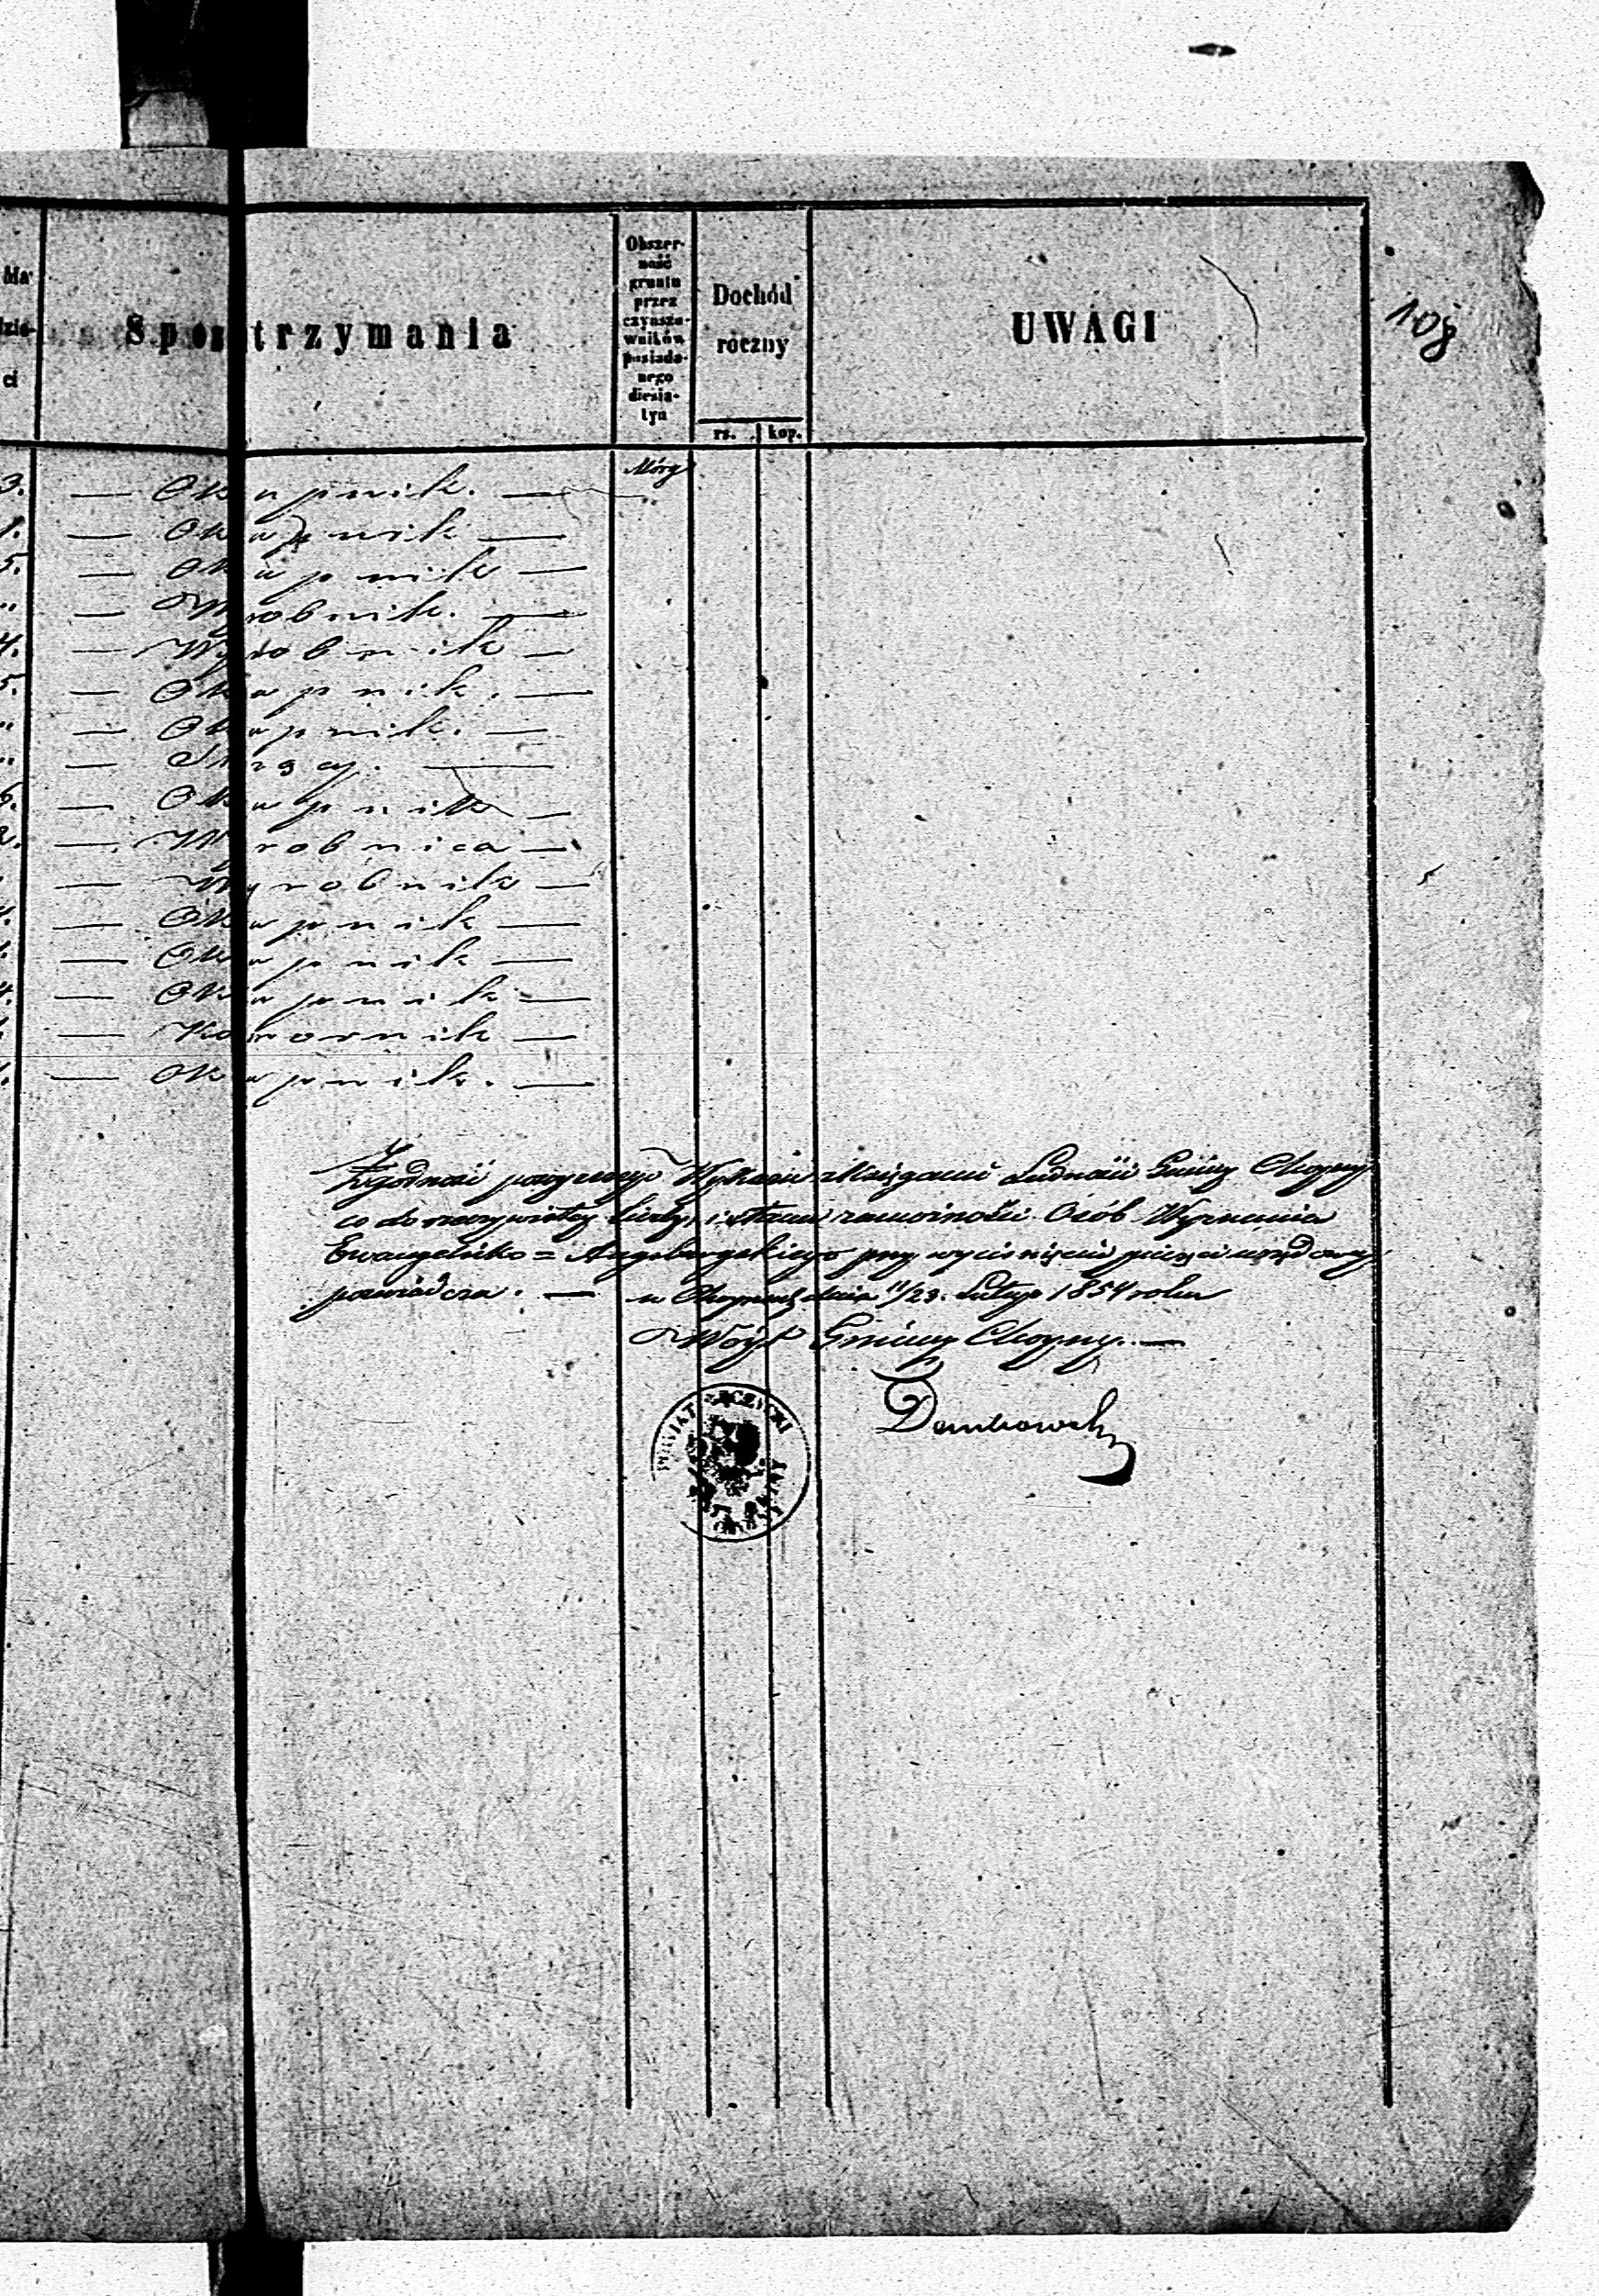 108
Ma
dzie-
ci
Spos utrzymania
Obszer-
ność
gruntu
przez
czynszo-
wników
posiada-
nego
diesia-
tyn
Dochód
roczny
rs. kop.
UWAGI
Mórg
3. — Okupnik. —
1. — Okupnik —
5. — Okupnik —
" — Wyrobnik. —
4. — Wyrobnik —
5. — Okupnik. —
" — Okupnik. —
" — Służący. —
6. — Okupnik —
2. — Wyrobnica —
— Wyrobnik —
4. — Okupnik —
— Okupnik —
4. — Okupnik —
— Komornik —
— Okupnik. —
Zgodność powyższego Wykazu z Księgami Ludności Gminy Choyny
co do rzeczywistej liczby, i stanu zamożności Osób Wyznania
Ewangelicko = Augsburgskiego przy wyciśnięciu pieczęci urzędowej
poświadcza. — w Choynach dnia 11/23. Lutego 1854 roku
Wójt Gminy Choyny. —
Dembowski
POWIAT ŁĘCZYCKI